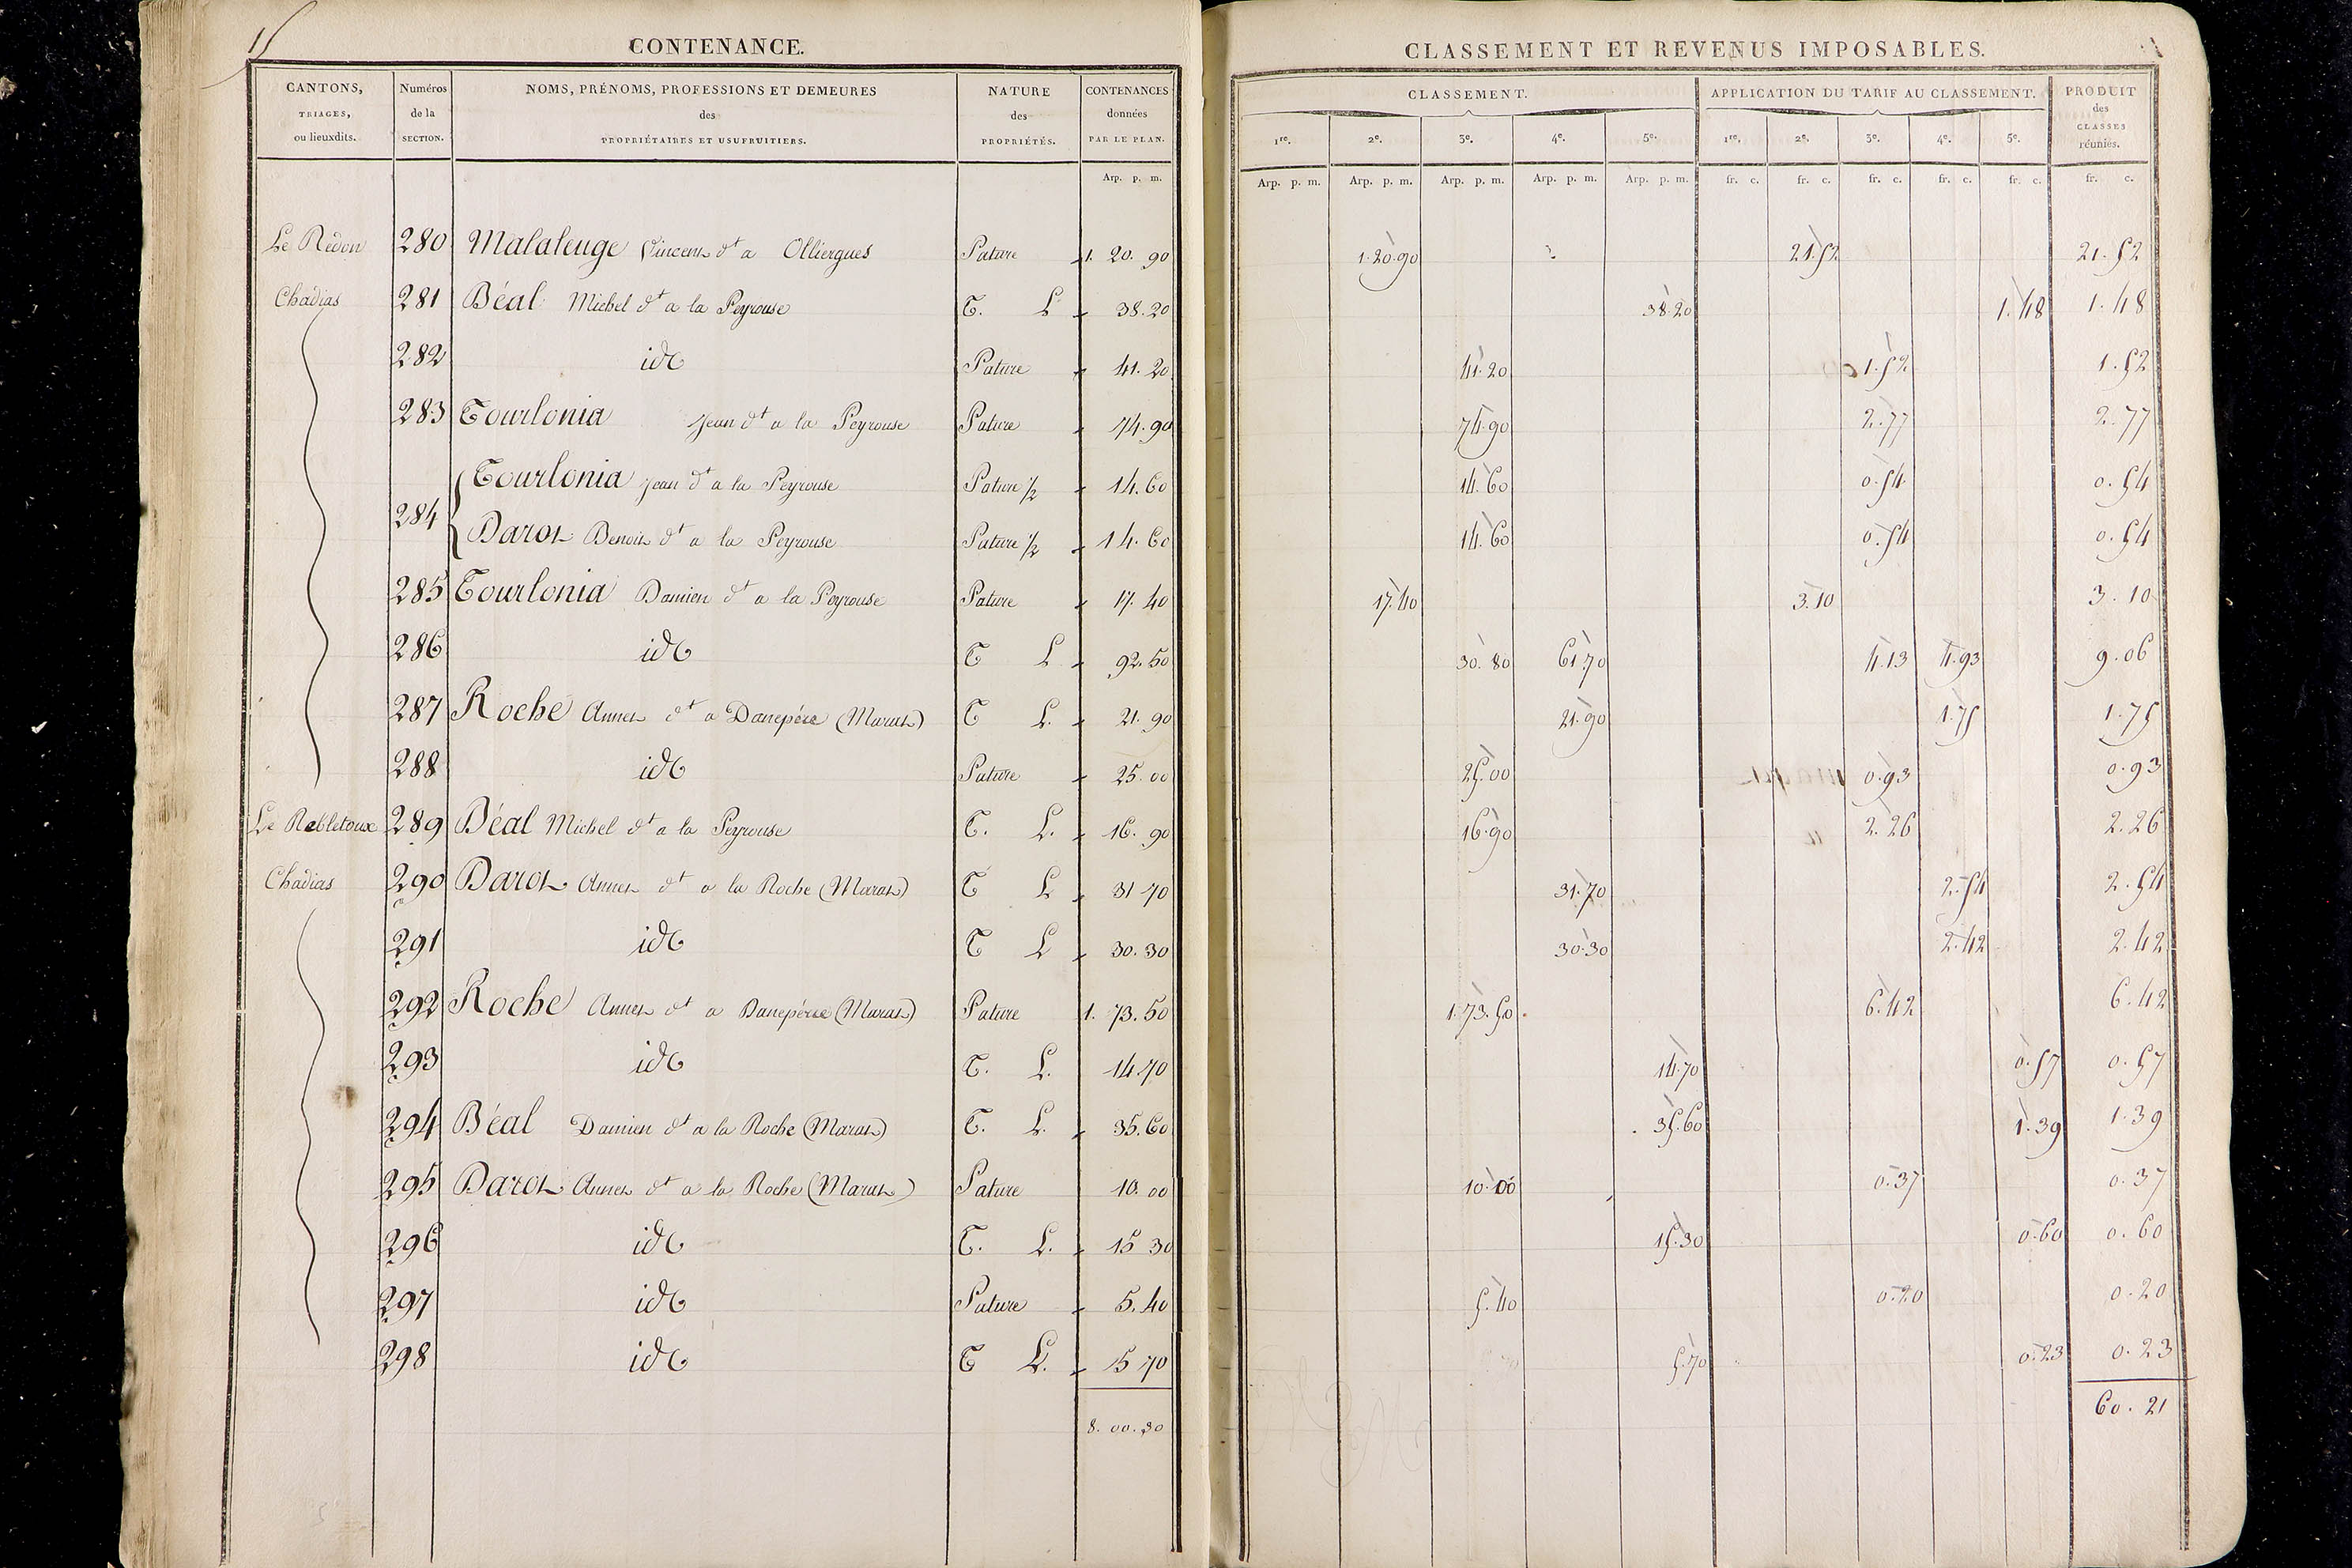 15
CONTENANCE.
CANTONS, TRIAGES, ou lieuxdits.
Numéros de la SECTION.
NOMS, PRÉNOMS, PROFESSIONS ET DEMEURES des PROPRIÉTAIRES ET USUFRUITIERS.
NATURE des PROPRIÉTÉS.
CONTENANCES données PAR LE PLAN.
Arp. p. m.
Le Redon 280 Malaleuge Vincent dt a Olliergues Pature 1. 20. 90
Chadias 281 Béal Michel dt a la Peyrouse T. L 38.20
282 id Pature 41.20
283 Tourlonia Jean dt a la Peyrouse Pature 74.90
284 Tourlonia Jean dt a la Peyrouse Pature 1/2 14.60
Darot Benoit dt a la Peyrouse Pature 1/2 14.60
285 Tourlonia Damien dt a la Peyrouse Pature 17.40
286 id T L 92.50
287 Roche Annet dt a Danepére (Marat) T L. 21.90
288 id Pature 25.00
Le Rebletoux 289 Béal Michel dt a la Peyrouse T. L. 16.90
Chadias 290 Darot Annet dt a la Roche (Marat) T L 31 70
291 id T L 30.30
292 Roche Annet dt a Danepére (Marat) Pature 1. 73.50
293 id T. L. 14.70
294 Béal Damien dt a la Roche (Marat) T. L. 35.60
295 Darot Annet dt a la Roche (Marat) Pature 10.00
296 id T. L. 15 30
297 id Pature 5.40
298 id T L. 15 70
8. 00. 30
CLASSEMENT ET REVENUS IMPOSABLES.
CLASSEMENT.
APPLICATION DU TARIF AU CLASSEMENT.
PRODUIT des CLASSES réunies.
1re. 2e. 3e. 4e. 5e. 1re. 2e. 3e. 4e. 5e.
Arp. p. m. Arp. p. m. Arp. p. m. Arp. p. m. Arp. p. m. fr. c. fr. c. fr. c. fr. c. fr. c. fr. c.
1.20.90 21.52 21.52
38.20 1.48 1.48
41.20 1.52 1.52
74.90 2.77 2.77
14.60 0.54 0.54
14.60 0.54 0.54
17.40 3.10 3.10
30.80 61.70 4.13 4.93 9.06
21.90 1.75 1.75
25.00 0.93 0.93
16.90 2.26 2.26
31.70 2.54 2.54
30.30 2.42 2.42
1.73.50 6.42 6.42
14.70 0.57 0.57
35.60 1.39 1.39
10.00 0.37 0.37
15.30 0.60 0.60
5.40 0.20 0.20
5.70 0.23 0.23
60.21